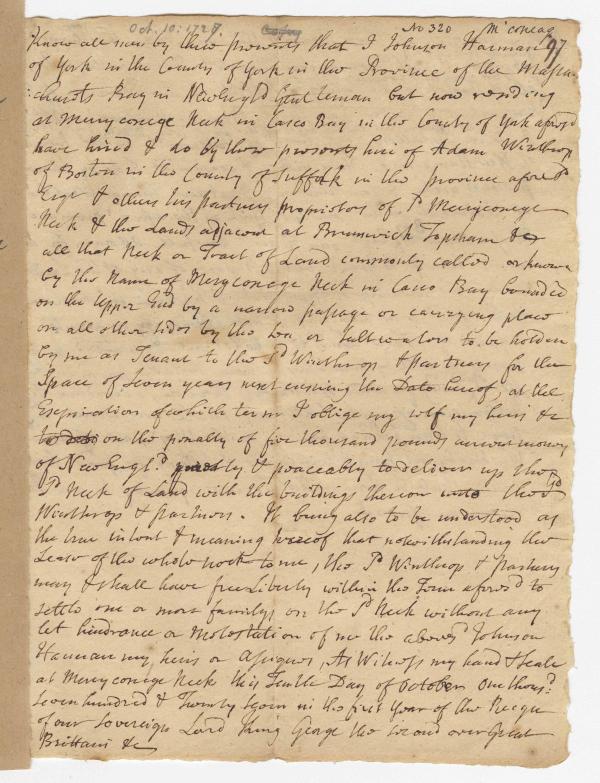 Oct. 10: 1727. No 320 Mʳ coneag
Know all men by these presents that I Johnson Harman 97
of York in the County of York in the Province of the Massa
chusets Bay in New Engld Gentleman but now residing
at Merryconege Neck in Casco Bay in the County of York aforesd
have hired & do by these presents hire of Adam Winthrop
of Boston in the County of Suffolk in the province afores'd
Esqr & others his partners proprietors of sd Merryconege
Neck & the Lands adjacent at Brunswick Topsham &c
all that Neck or Tract of Land commonly called or known
by the Name of Meryconege Neck in Casco Bay bounded
on the upper End by a narrow passage or carrying place
on all other sides by the Sea or Saltwaters to be holden
by me as Tenant to the sd Winthrop & partners for the
Space of Seven years next ensuing the Date hereof, at the
Expiration of which term I oblige my self my heirs &c
on the penalty of five thousand pounds currant money
of New Engld quietly & peaceably to deliver up the
sd Neck of Land with the buildings thereon unto the sd
Winthrop & Partners. It being also to be understood as
the true intent & meaning hereof that notwithstanding the
Lease of the whole neck to me, the sd Winthrop & partners
may & shall have free Liberty within the Term aforesd to
settle one or more familys on the sd Neck without any
let hindrance or Molestation of me the abovesd Johnson
Harman my heirs or Assignes, As Witness my hand & seale
at Merryconege Neck this Tenth Day of October One thousd
Seven hundred & Twenty Seven in the first Year of the Reign
of our Sovereign Lord King George the Second over Great
Brittain &c